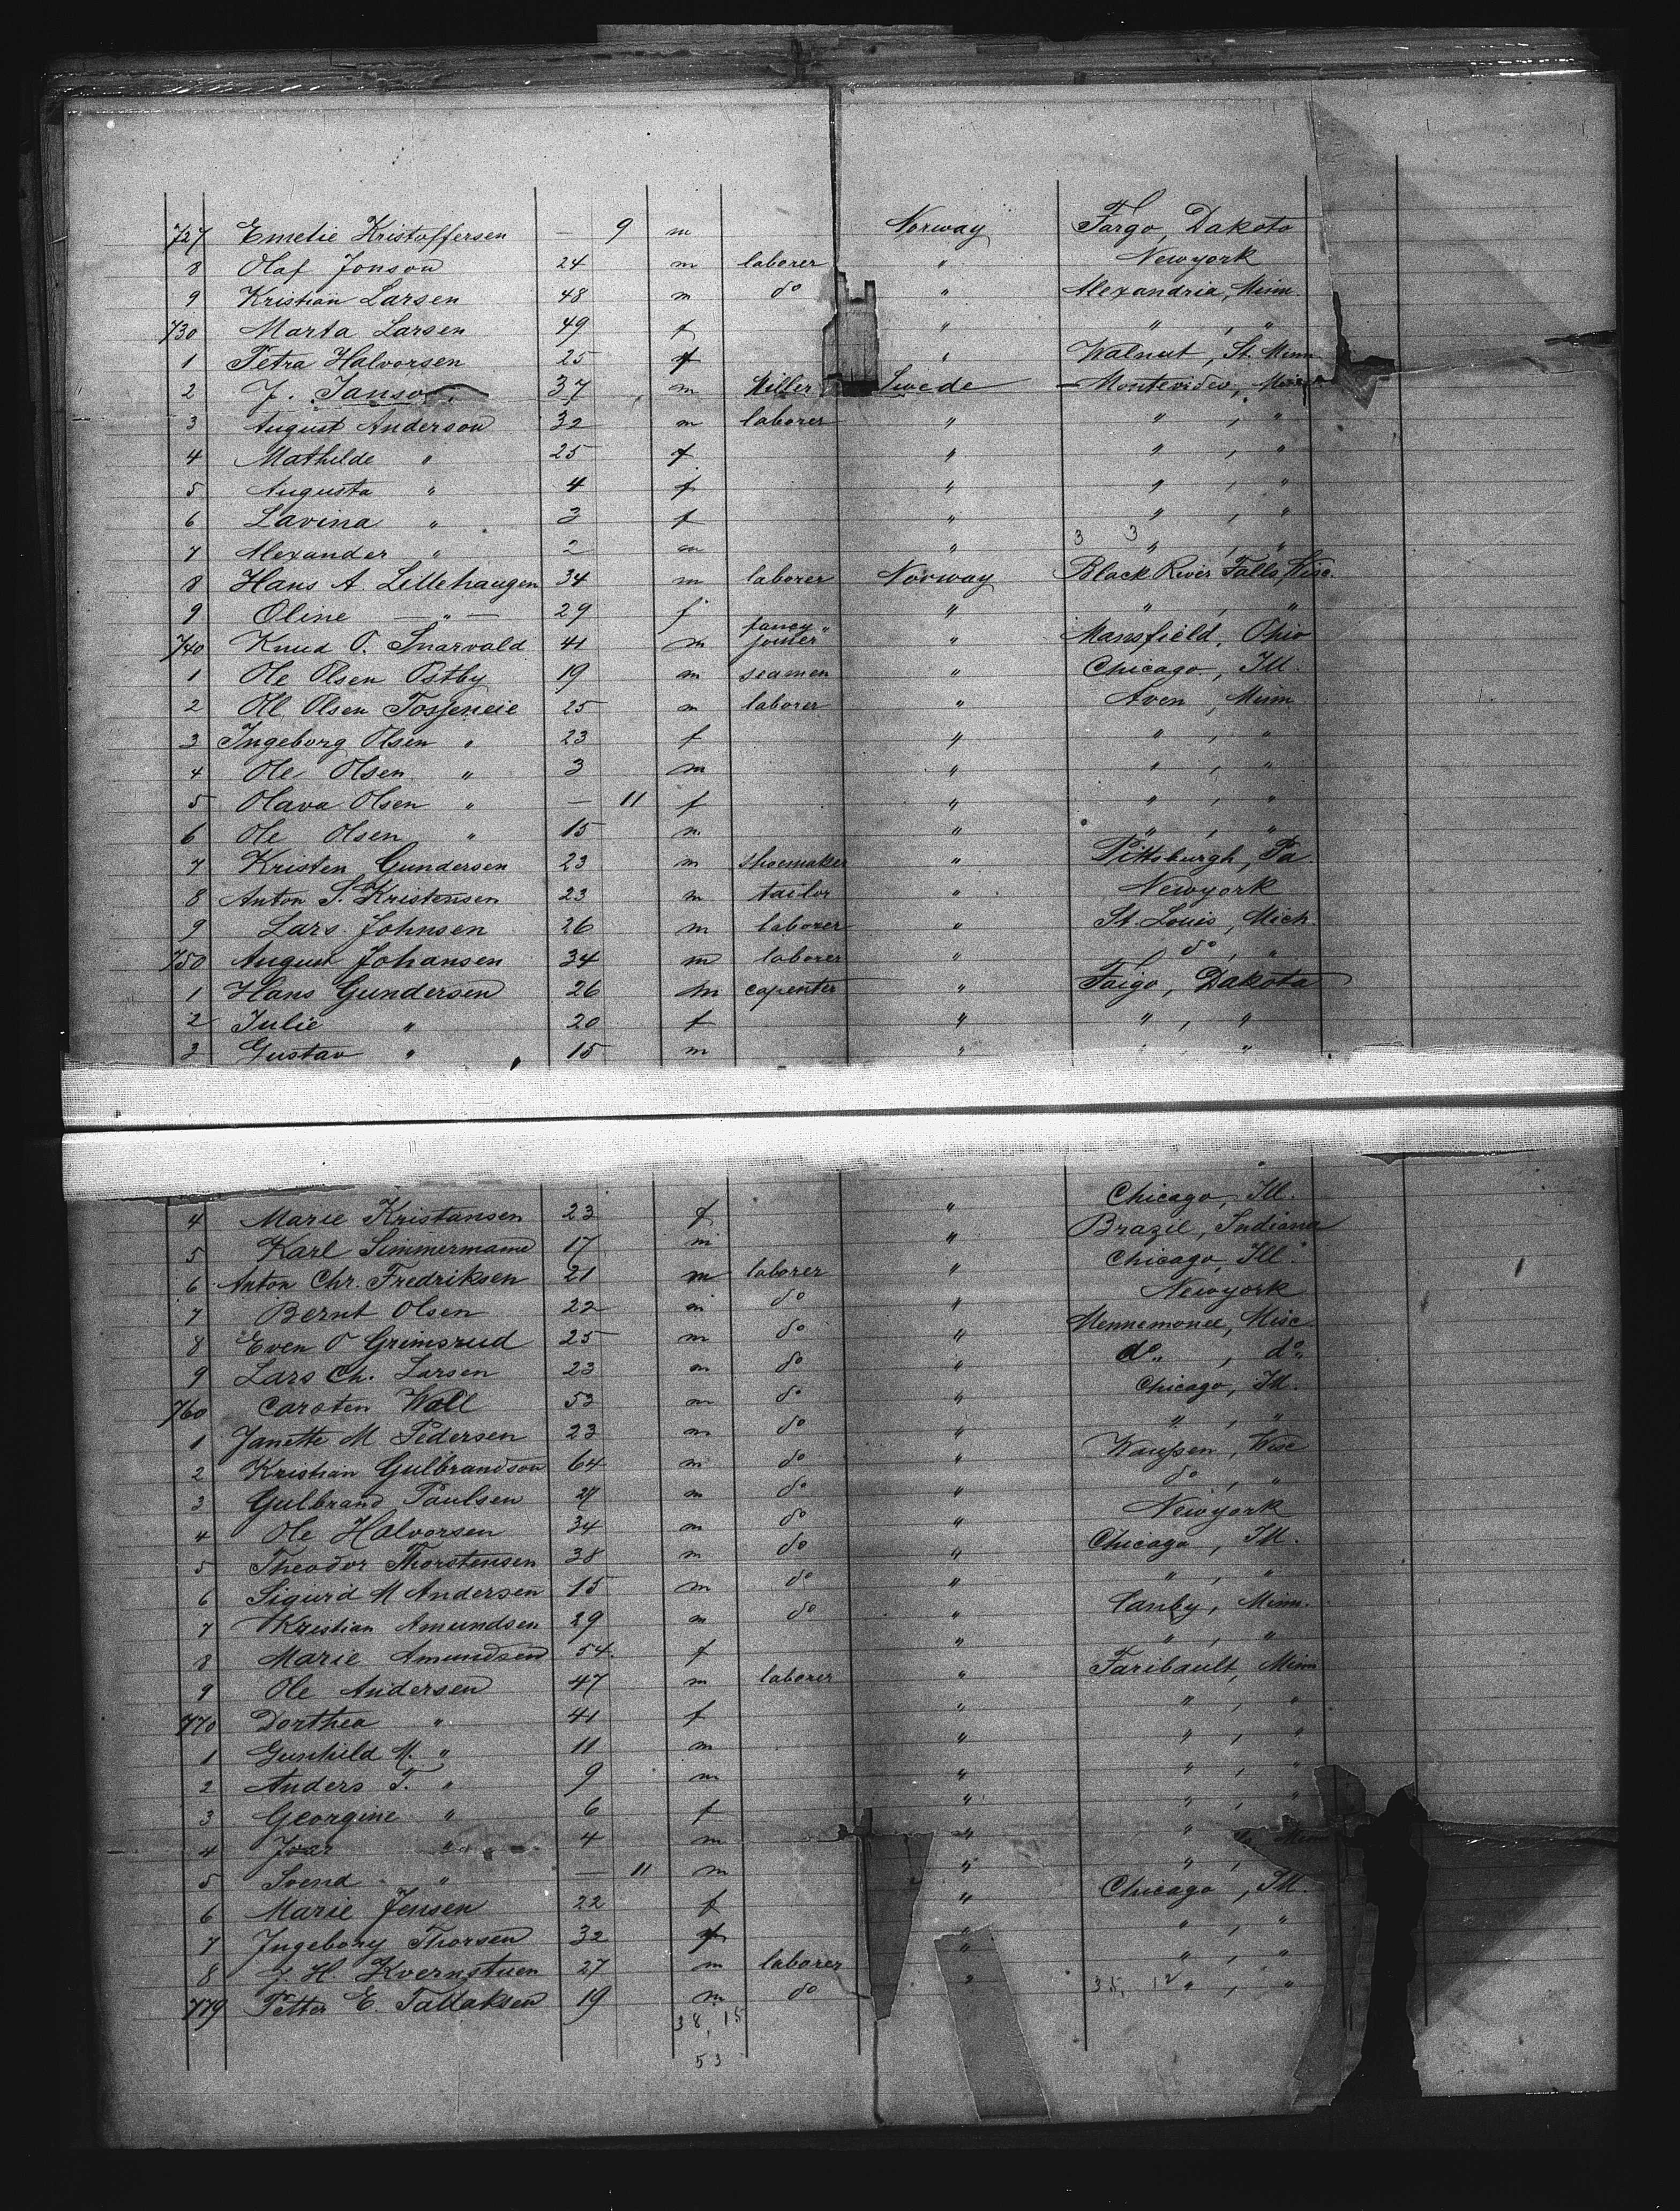 727 Emelie Kristoffersen — 9 m Norway Fargo, Dakota
8 Olaf Jonson 24 m laborer " Newyork
9 Kristian Larsen 48 m do " Alexandria, Minn.
730 Marta Larsen 49 f " " , "
1 Petra Halvorsen 25 f " Walnut, St. Minn
2 J. Janson 37 m Miller Swede Montevideo,
3 August Anderson 32 m laborer " " , "
4 Mathilde " 25 f " " , "
5 Augusta " 4 f " " , "
6 Lavina " 3 f " " , "
3 3
7 Alexander " 2 m " " , "
8 Hans A. Lillehaugen 34 m laborer Norway Black River Falls Wisc.
9 Oline — " — 29 f " " , "
740 Knud O. Snarvold 41 m fancy joiner " Mansfield, Ohio
1 Ole Olsen Ostby 19 m seamen " Chicago, Ill.
2 Ol. Olsen 25 m laborer " Aven, Minn
3 Ingeborg Olsen " 23 f " " , "
4 Ole Olsen " 3 m " " , "
5 Olava Olsen " — 11 f " " , "
6 Ole Olsen " 15 m " " , "
7 Kristen Gundersen 23 m shoemaker " Pittsburgh, Pa
8 Anton S. Kristensen 23 m tailor " Newyork
9 Lars Johnsen 26 m laborer " St. Louis, Mich.
750 August Johansen 34 m laborer " do , "
1 Hans Gundersen 26 m capenter " Faigo, Dakota
2 Julie " 20 f " " , "
3 Gustav " 15 m " " , "
4 Marie Kristansen 23 f " Chicago, Ill.
5 Karl Simmermann 17 m " Brazil, Indiana
6 Anton Chr. Fredriksen 21 m laborer " Chicago, Ill.
7 Bernt Olsen 22 m do " Newyork
8 Even O Grimsrud 25 m do " Mennemonee, Wisc
9 Lars Ch. Larsen 23 m do " do , do
760 Carsten Wall 53 m do " Chicago, Ill.
1 Janette M Pedersen 23 m do " " , "
2 Kristian Gulbrandson 64 m do " Waupen, Wisc
3 Gulbrand Paulsen 27 m do " do , "
4 Ole Halvorsen 34 m do " Newyork
5 Theodor Thorstensen 38 m do " Chicago, Ill.
6 Sigurd M Andersen 15 m do " " , "
7 Kristian Amundsen 29 m do " Canby, Minn.
8 Marie Amundsen 54 f " " , "
9 Ole Andersen 47 m laborer " Faribault, Minn
770 Dorthea " 41 f " " , "
1 Gunhild M. " 11 m " " , "
2 Anders T. " 9 m " " , "
3 Georgine " 6 f " " , "
4 Ivar " 4 m " " Minn
5 Svend " — 11 m " " ,
6 Marie Jensen 22 f " Chicago, Ill.
7 Ingeborg Thorsen 32 f " " , "
8 J. H. Kvernstuen 27 m laborer " " , "
779 Petter E. Tallaksen 19 m do " 35, 12 " , "
38, 15
53